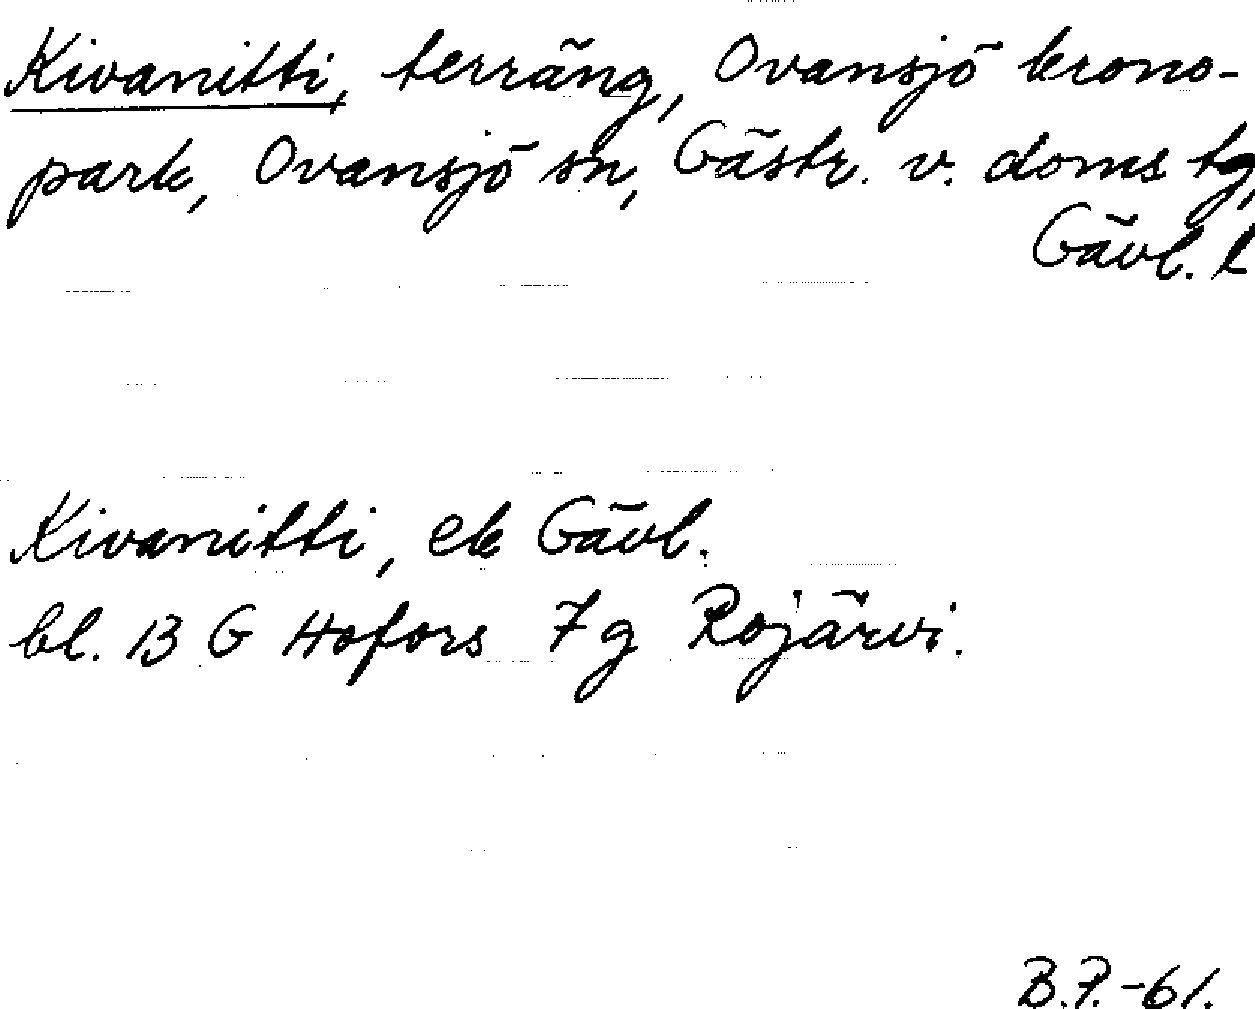 Kivanitti, terräng, Ovansjö krono-
park, Ovansjö sn, Gästr. v. doms tg,
Gävl. l
Kivanitti, ek Gävl.
bl. 13 G Hofors 7 g Rojärvi.
B.P.-61.